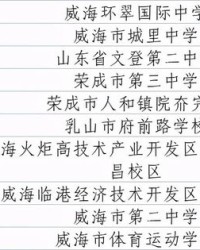 威海环翠国际中学
威海市城里中学
山东省文登第二中
荣成市第三中学
荣成市人和镇院夼完
乳山市府前路学校
海火炬高技术产业开发区
昌校区
威海临港经济技术开发区
威海市第二中学
威海市体育运动学